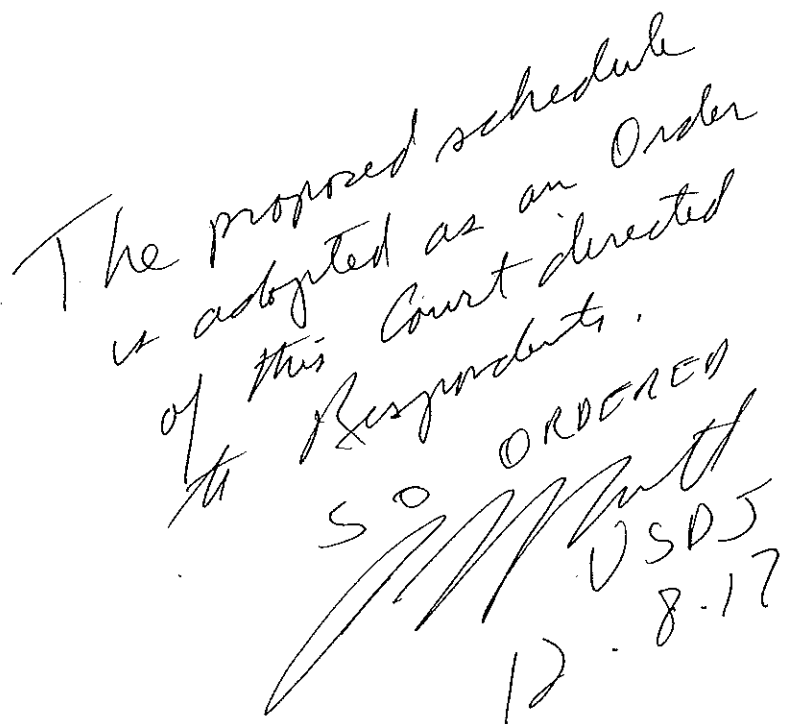 The proposed schedule
is adopted as an Order
of this Court directed
Respondents.
SO ORDERED
USDJ
12.8.17